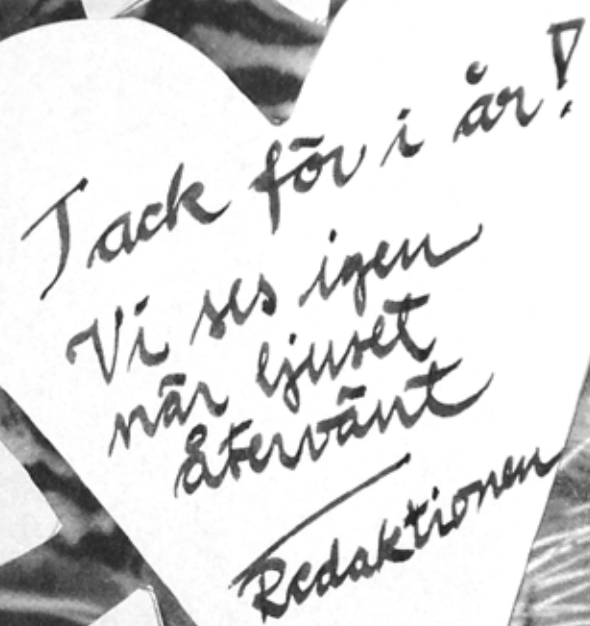 Tack för i år!
Vi ses igen
när ljuset
återvänt
Redaktionen